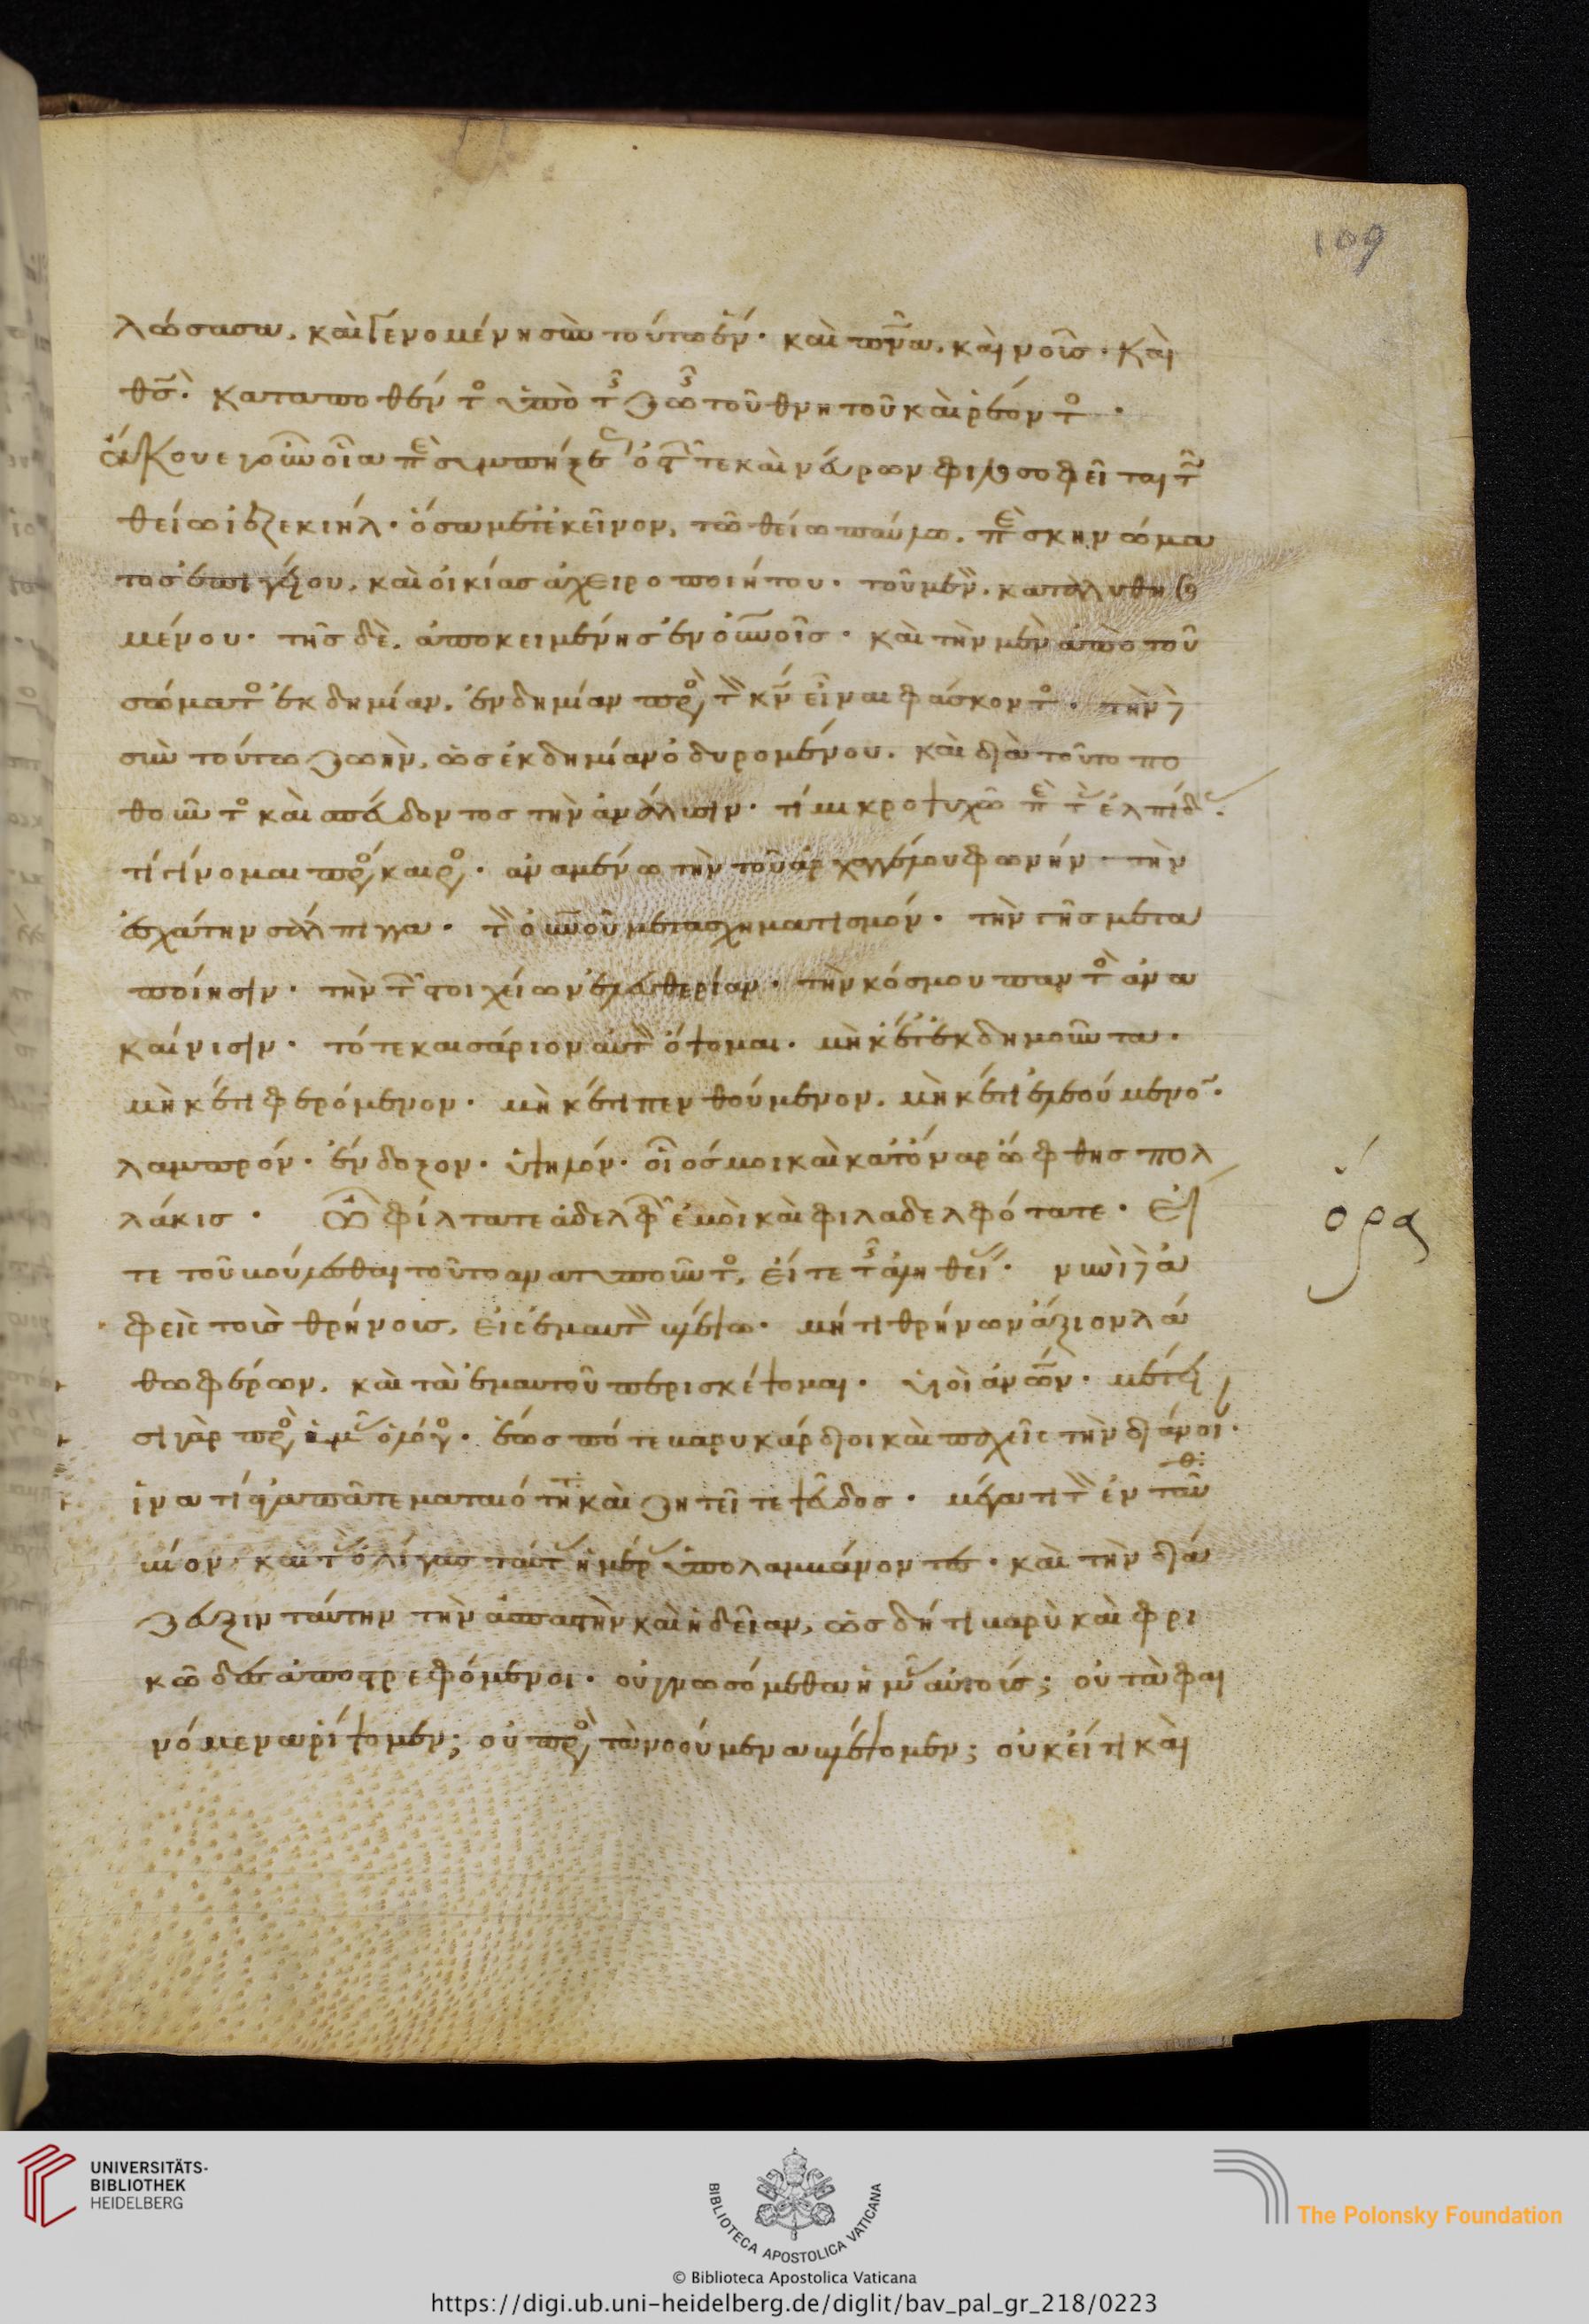 λώσασα, καὶ γενομένη σὺν τούτω ἕν· καὶ πν̅α, καὶ νοῦς· καὶ
θς̅· καταποθέντος ὑπὸ τῆς ζωῆς τοῦ θνητοῦ καὶ ῥέοντος·
ἄκουε γοῦν οἷα περὶ συμπήξεως ὀστῶν τε καὶ νεύρων φιλοσοφεῖται τῶ
θείω ἰεζεκιήλ· ὅσα μετ' ἐκεῖνον, τῶ θείω παύλω. περὶ σκηνώμα
τος ἐπιγείου, καὶ οἰκίας ἀχειροποιήτου· τοῦ μὲν, καταλυθησο
μένου· τῆς δὲ, ἀποκειμένης ἐν οὐνοῖς· καὶ τὴν μὲν ἀπὸ τοῦ
σώματος ἐκδημίαν, ἐνδημίαν πρὸς τὸν κν̅ εἶναι φάσκοντος· τὴν δὲ
σὺν τούτω ζωὴν, ὡς ἐκδημίαν ὀδυρομένου. καὶ διὰ τοῦτο πο
θοῦντος καὶ σπεύδοντος τὴν ἀνάλυσιν· τί μικροψυχῶ περὶ τὰς ἐλπίδας·
τί γίνομαι πρόσκαιρος· ἀναμένω τὴν τοῦ ἀρχαγγέλου φωνήν· τὴν
ἐσχάτην σάλπιγγα· τὸν οὐνοῦ μετασχηματισμόν· τὴν γῆς μετα
ποίησιν· τὴν τῶν στοιχείων ἐλευθερίαν· τὴν κόσμου παντὸς ἀνα
καίνισιν· τότε καισάριον αὐτὸν ὄψομαι· μὴκέτι ἐκδημοῦντα·
μὴκέτι φερόμενον· μὴκέτι πενθούμενον, μὴκέτι ἐλεούμενον·
λαμπρόν· ἔνδοξον· ὑψηλόν· οἷος μοι καὶ κατόναρ ὤφθης πολ
λάκις· ὦ φίλτατε ἀδελφῶν ἐμοὶ καὶ φιλαδελφότατε· εἴ
τε τοῦ βούλεσθαι τοῦτο ἀνατυποῦντος, εἴτε τῆς ἀληθείας· νυνὶ δὲ ἀ
φεὶς τοὺς θρήνους, εἰς ἐμαυτὸν βλέψω· μή τι θρήνων ἄξιον λά
θω φέρων, καὶ τὰ ἐμαυτοῦ περισκέψομαι· υἱοὶ ἀνων· μέτει
σι γὰρ πρὸς ὑμᾶς ὁ λόγος· ἕως πότε βαρυκάρδιοι καὶ παχεῖς τὴν διάνοιαν·
ἱνατί ἀγαπᾶτε ματαιότητα καὶ ζητεῖτε ψεῦδος· μέγα τι τὸν ἐνταῦθα
βίον· καὶ τὰς ὀλίγας ταύτας ἡμέρας ὑπολαμβάνοντες· καὶ τὴν διά
ζευξιν ταύτην τὴν ἀσπαστὴν καὶ ἡδεῖαν, ὡς δή τι βαρὺ καὶ φρι
κῶδες ἀποστρεφόμενοι· οὐ γνωσόμεθα ἡμᾶς αὐτούς; οὐ τὰ φαι
νόμενα ῥίψομεν; οὐ πρὸς τὰ νοούμενα βλέψομεν; οὐκ εἴ τι καὶ
ὅρα
109
UNIVERSITÄTS-
BIBLIOTHEK
HEIDELBERG
BIBLIOTECA APOSTOLICA VATICANA
The Polonsky Foundation
© Biblioteca Apostolica Vaticana
https://digi.ub.uni-heidelberg.de/diglit/bav_pal_gr_218/0223